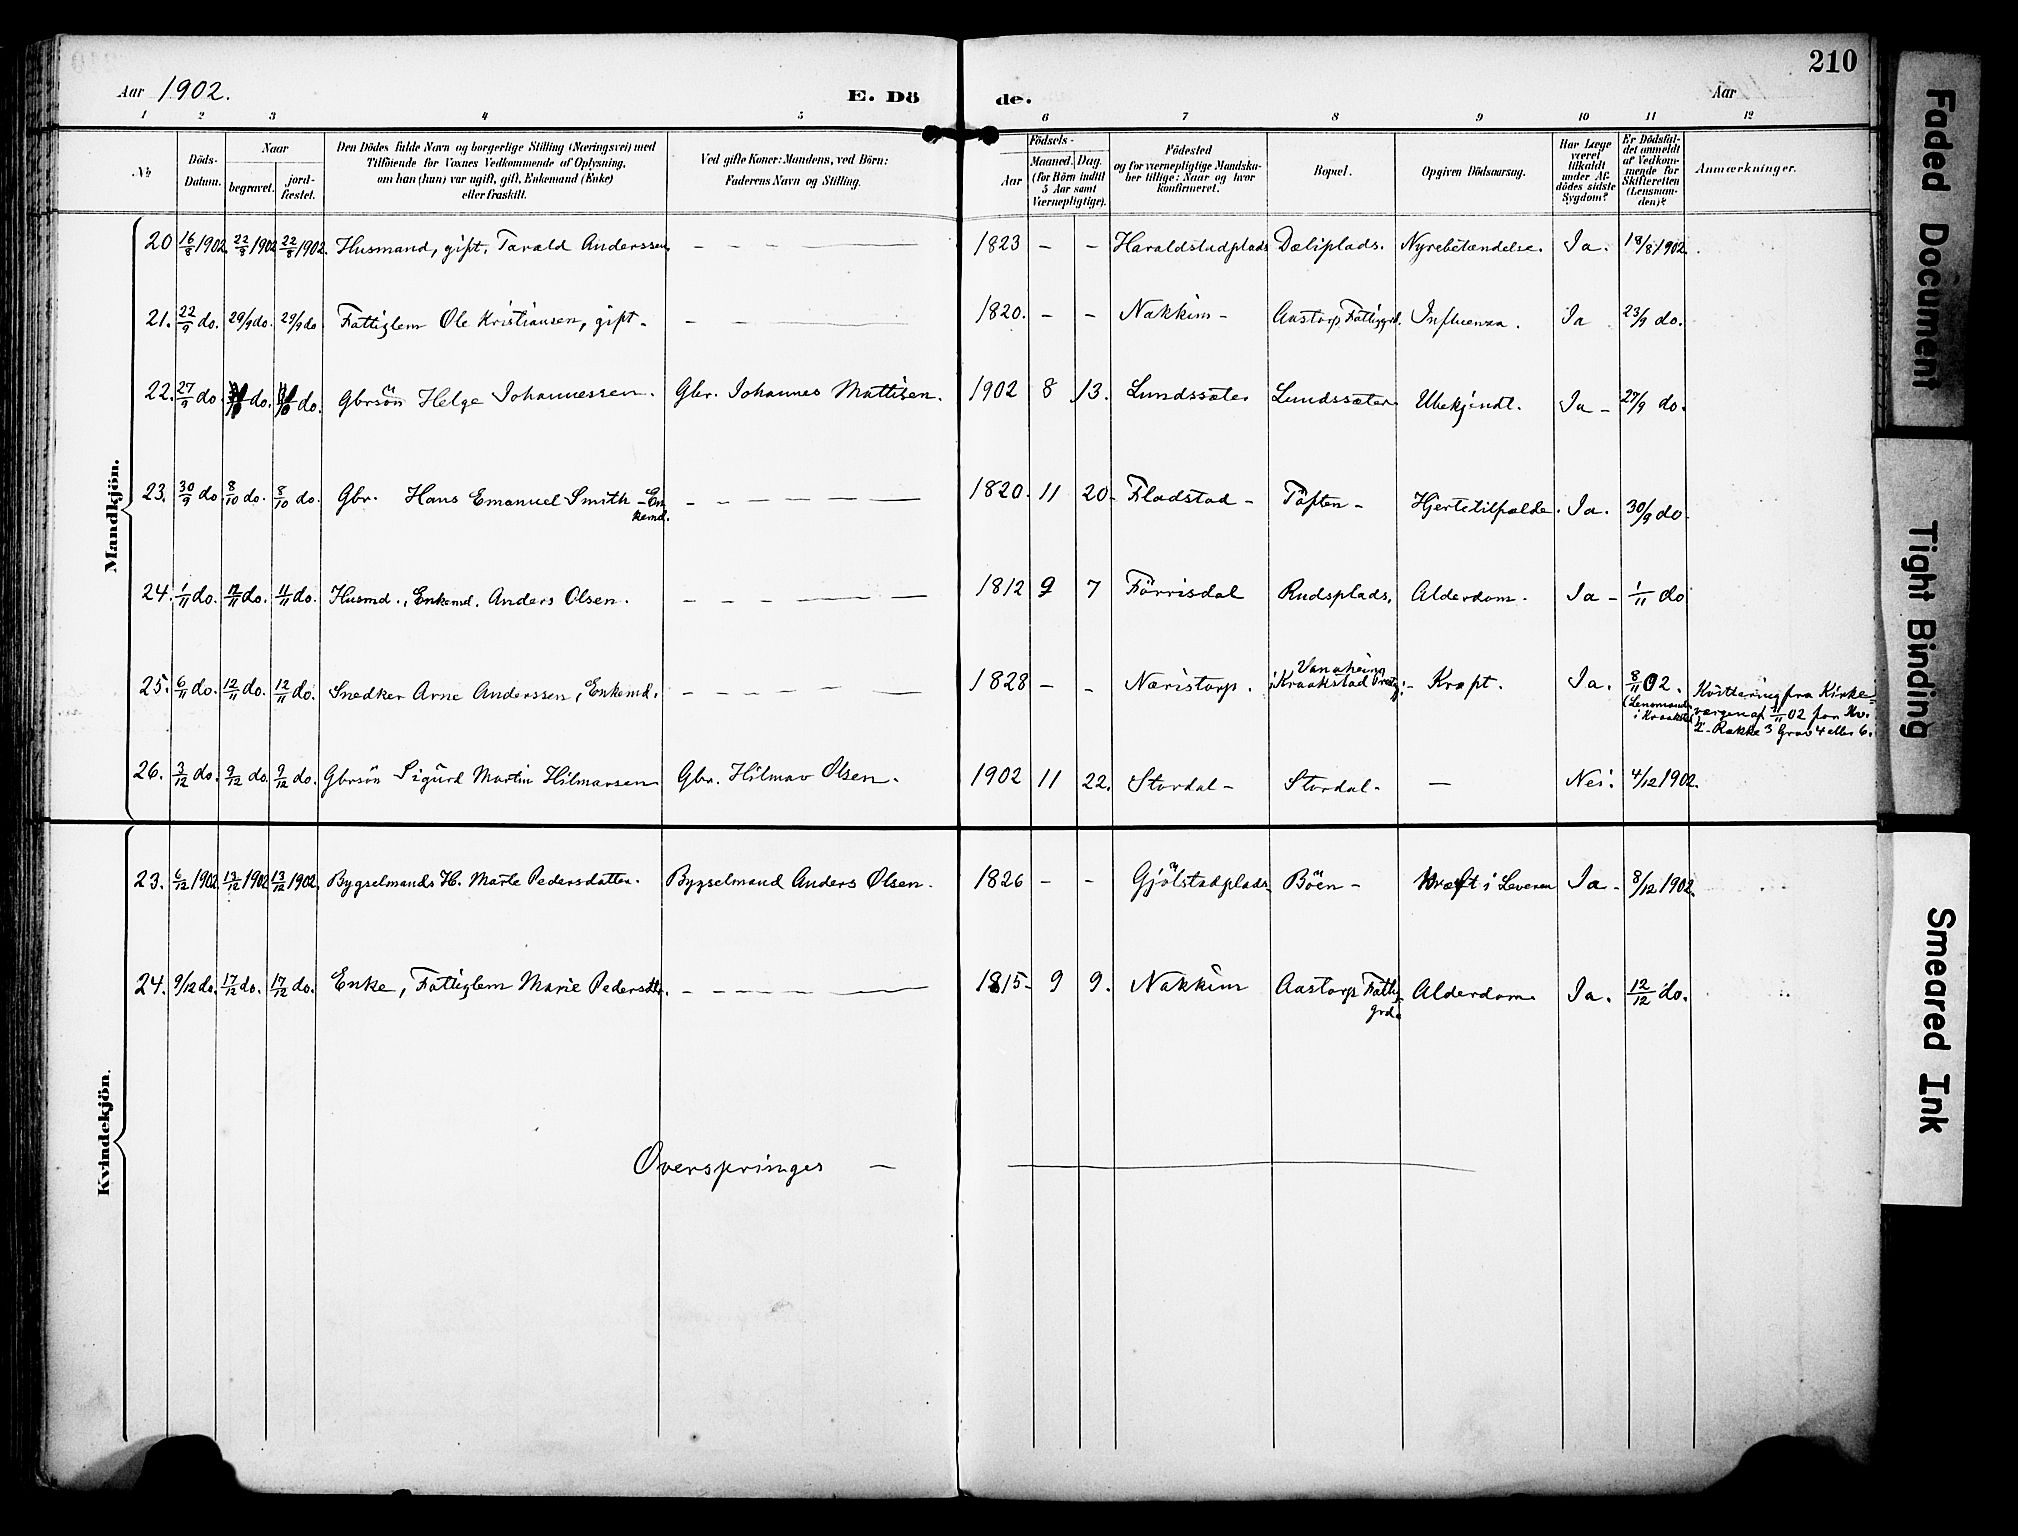 210
Aar 1902.
E. Dö de.
Aar
1 2 3 4 5 6 7 8 9 10 11 12
№
Döds-
Datum.
Naar
begravet.
jord-
fæstet.
Den Dödes fulde Navn og borgerlige Stilling (Næringsvei) med
Tilföiende for Voxnes Vedkommende af Oplysning,
om han (hun) var ugift, gift, Enkemand (Enke)
eller fraskilt.
Ved gifte Koner: Mandens, ved Börn:
Faderens Navn og Stilling.
Födsels-
Aar
Maaned. Dag.
(for Börn indtil
5 Aar samt
Værnepligtige).
Födested
og for værnepligtige Mandska-
ber tillige: Naar og hvor
konfirmeret.
Bopæl.
Opgiven Dödsaarsag.
Har Læge
været
tilkaldt
under Af-
dödes sidste
Sygdom?
Er Dödsfal-
det anmeldt
af Vedkom-
mende for
Skifteretten
(Lensman-
den)?
Anmærkninger.
Mandkjön.
20 16/8 1902. 22/8 1902 22/8 1902. Husmand, gift, Tarald Anderssen, – – – – 1823 – – Haraldstadplads Dæliplads. Nyrebetændelse. Ja. 18/8 1902.
21. 22/9 do. 29/9 do. 29/9 do Fattiglem Ole Kristiansen, gift – – – 1820. – – Nakkim – Aastorp Fattiggrd. Influenza. Ja 23/9 do.
22. 27/9 do. do. do. Gbrsön Helge Johannessen. Gbr. Johannes Mattisen. 1902 8 13. Lundssæter Lundssæter Ubekjendt. Ja – 27/9 do.
23. 30/9 do 8/10 do. 8/10 do. Gbr. Hans Emanuel Smith – En-
kemd. – – – – – 1820. 11 20. Fladstad – Töften – Hjertetilfælde. Ja. 30/9 do.
24. 1/11 do. 11/11 do. Husmd., Enkemd. Anders Olsen. – – – – – 1812 9 7 Förrisdal Rudsplads, Alderdom. Ja – 1/11 do
25. 6/11 do. 12/11 do. 12/11 do. Snedker Arne Anderssen, Enkemd. – – – – – 1828 – – Næristorp.
i Kraakstad – Kræft. Ja. 8/11 02.
(Lensmanden
i Kraakstad)
Kvittering fra Kirke-
værgen af 11/11 02 for Kv.
2 – Række 3 Grav 4 eller 6.
26. 3/12 do. 9/12 do. 9/12 do. Gbrsön Sigurd Martin Hilmarsen Gbr. Hilmar Olsen. 1902 11 22. Stordal – Stordal. – Nei. 4/12 1902.
Kvindekjön.
23. 6/12 1902 13/12 1902 13/12 1902. Bygselmands H. Marte Pedersdatter. Bygselmand Anders Olsen. 1826 – – Gjölstadplads Böen – Kræft i Leveren Ja – 8/12 1902.
24. 9/12 do. 17/12 do. 17/12 do. Enke, Fattiglem Marie Pedersdtr. – – – – – 1815 – 9 9. Nakkim Aastorp Fattig-
grd. Alderdom Ja. 12/12 do.
Overspringes –
Faded Document
Tight Binding
Smeared Ink